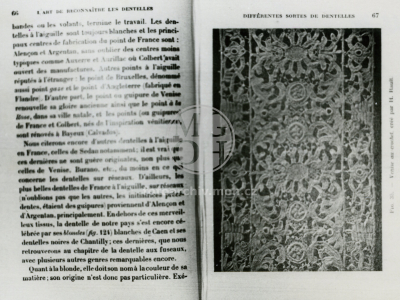 66 L'ART DE RECONNAITRE LES DENTELLES
bandes ou les volants, termine le travail. Les den-
telles à l'aiguille sont toujours blanches et les princi-
paux centres de fabrication du point de France sont :
Alençon et Argentan, sans oublier des centres moins
typiques comme Auxerre et Aurillac où Colbert avait
ouvert des manufactures. Autres points à l'aiguille
réputés à l'étranger : le point de Bruxelles, dénommé
aussi point gaze et le point d'Angleterre (fabriqué en
Flandre). D'autre part, le point ou guipure de Venise
renouvelle sa gloire ancienne ainsi que le point à la
Rose, dans sa ville natale, et les points (ou guipures)
de France et Colbert, nés de l'inspiration vénitienne,
sont rénovés à Bayeux (Calvados).
Nous citerons encore d'autres dentelles à l'aiguille
en France, celles de Sedan notamment ; il est vrai que
ces dernières ne sont guère originales, non plus que
celles de Venise, Burano, etc., du moins en ce qui
concerne les dentelles sur réseaux. D'ailleurs, les
plus belles dentelles de France à l'aiguille, sur réseaux
(n'oublions pas que les autres, les initiatrices
dentes, étaient des guipures) proviennent d'Alençon et
d'Argentan, principalement. En dehors de ces merveil-
leux tissus, la dentelle de notre pays est encore célé-
brée par ses blondes (fig. 124) blanches de Caen et ses
dentelles noires de Chantilly ; ces dernières, que nous
retrouverons au chapitre de la dentelle aux fuseaux,
avec plusieurs autres genres remarquables encore.
Quant à la blonde, elle doit son nom à la couleur de sa
matière ; son origine n'est donc pas particulière. Exé-
DIFFÉRENTES SORTES DE DENTELLES 67